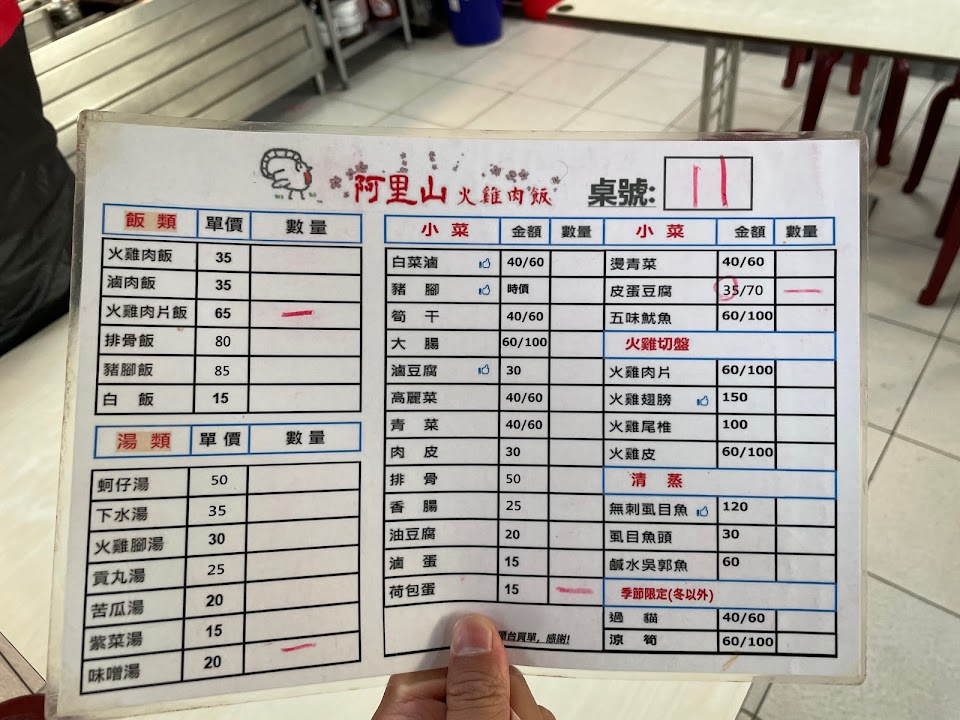 阿里山火雞肉飯 桌號: 11
飯類 單價 數量
火雞肉飯 35
滷肉飯 35
火雞肉片飯 65 一
排骨飯 80
豬腳飯 85
白飯 15
湯類 單價 數量
蚵仔湯 50
下水湯 35
火雞腳湯 30
貢丸湯 25
苦瓜湯 20
紫菜湯 15 一
味噌湯 20
小菜 金額 數量
白菜滷 40/60
豬腳 時價
筍干 40/60
大腸 60/100
滷豆腐 30
高麗菜 40/60
青菜 40/60
肉皮 30
排骨 50
香腸 25
油豆腐 20
滷蛋 15
荷包蛋 15 一
台買單,感謝!
小菜 金額 數量
燙青菜 40/60
皮蛋豆腐 35/70 一
五味魷魚 60/100
火雞切盤
火雞肉片 60/100
火雞翅膀 150
火雞尾椎 100
火雞皮 60/100
清蒸
無刺虱目魚 120
虱目魚頭 30
鹹水吳郭魚 60
季節限定(冬以外)
過貓 40/60
涼筍 60/100